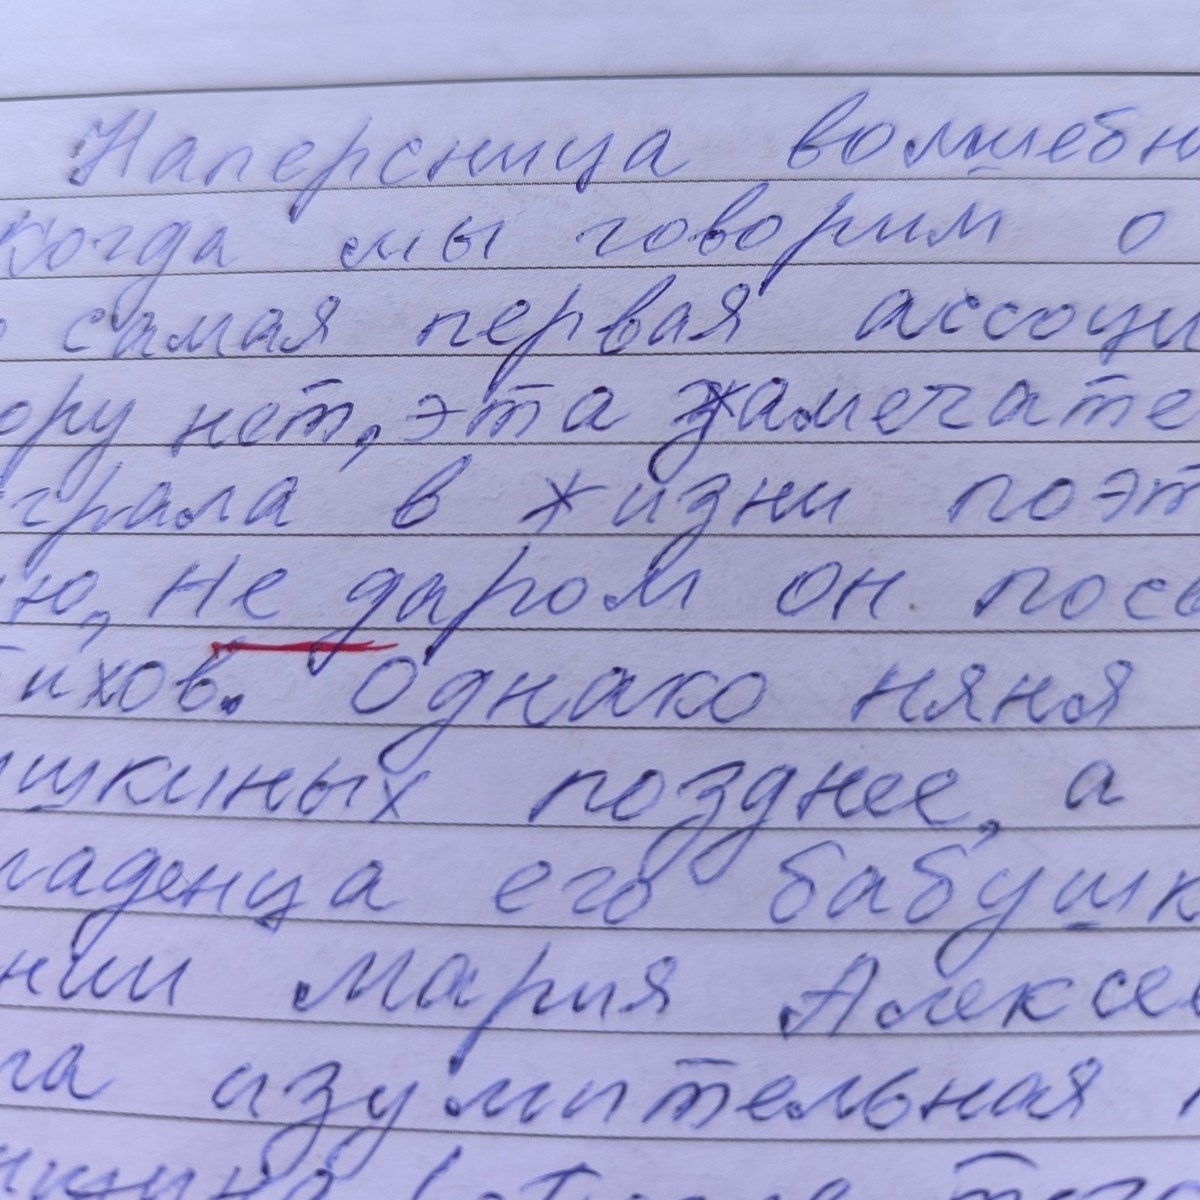 Наперсница волшебн
когда мы говорим о
самая первая ассоци
ору нет, эта замечате
грала в жизни поэт
ю, не даром он посв
тихов. Однако няня
шкиных позднее, а
ладенца его бабушк
нии Мария Алексе
ла изумительная